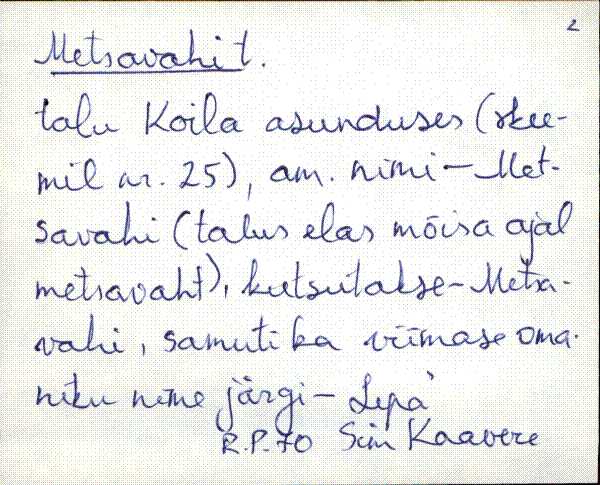 2
Metsavahi t.
talu Koila asunduses (skee-
mil nr. 25), am. nimi - Met-
savahi (talus elas mõisa ajal
metsavaht), kutsutakse - Metsa-
vahi, samuti ka viimase oma-
niku nime järgi - Lepa`
R.P. 70 Siim Kaavere